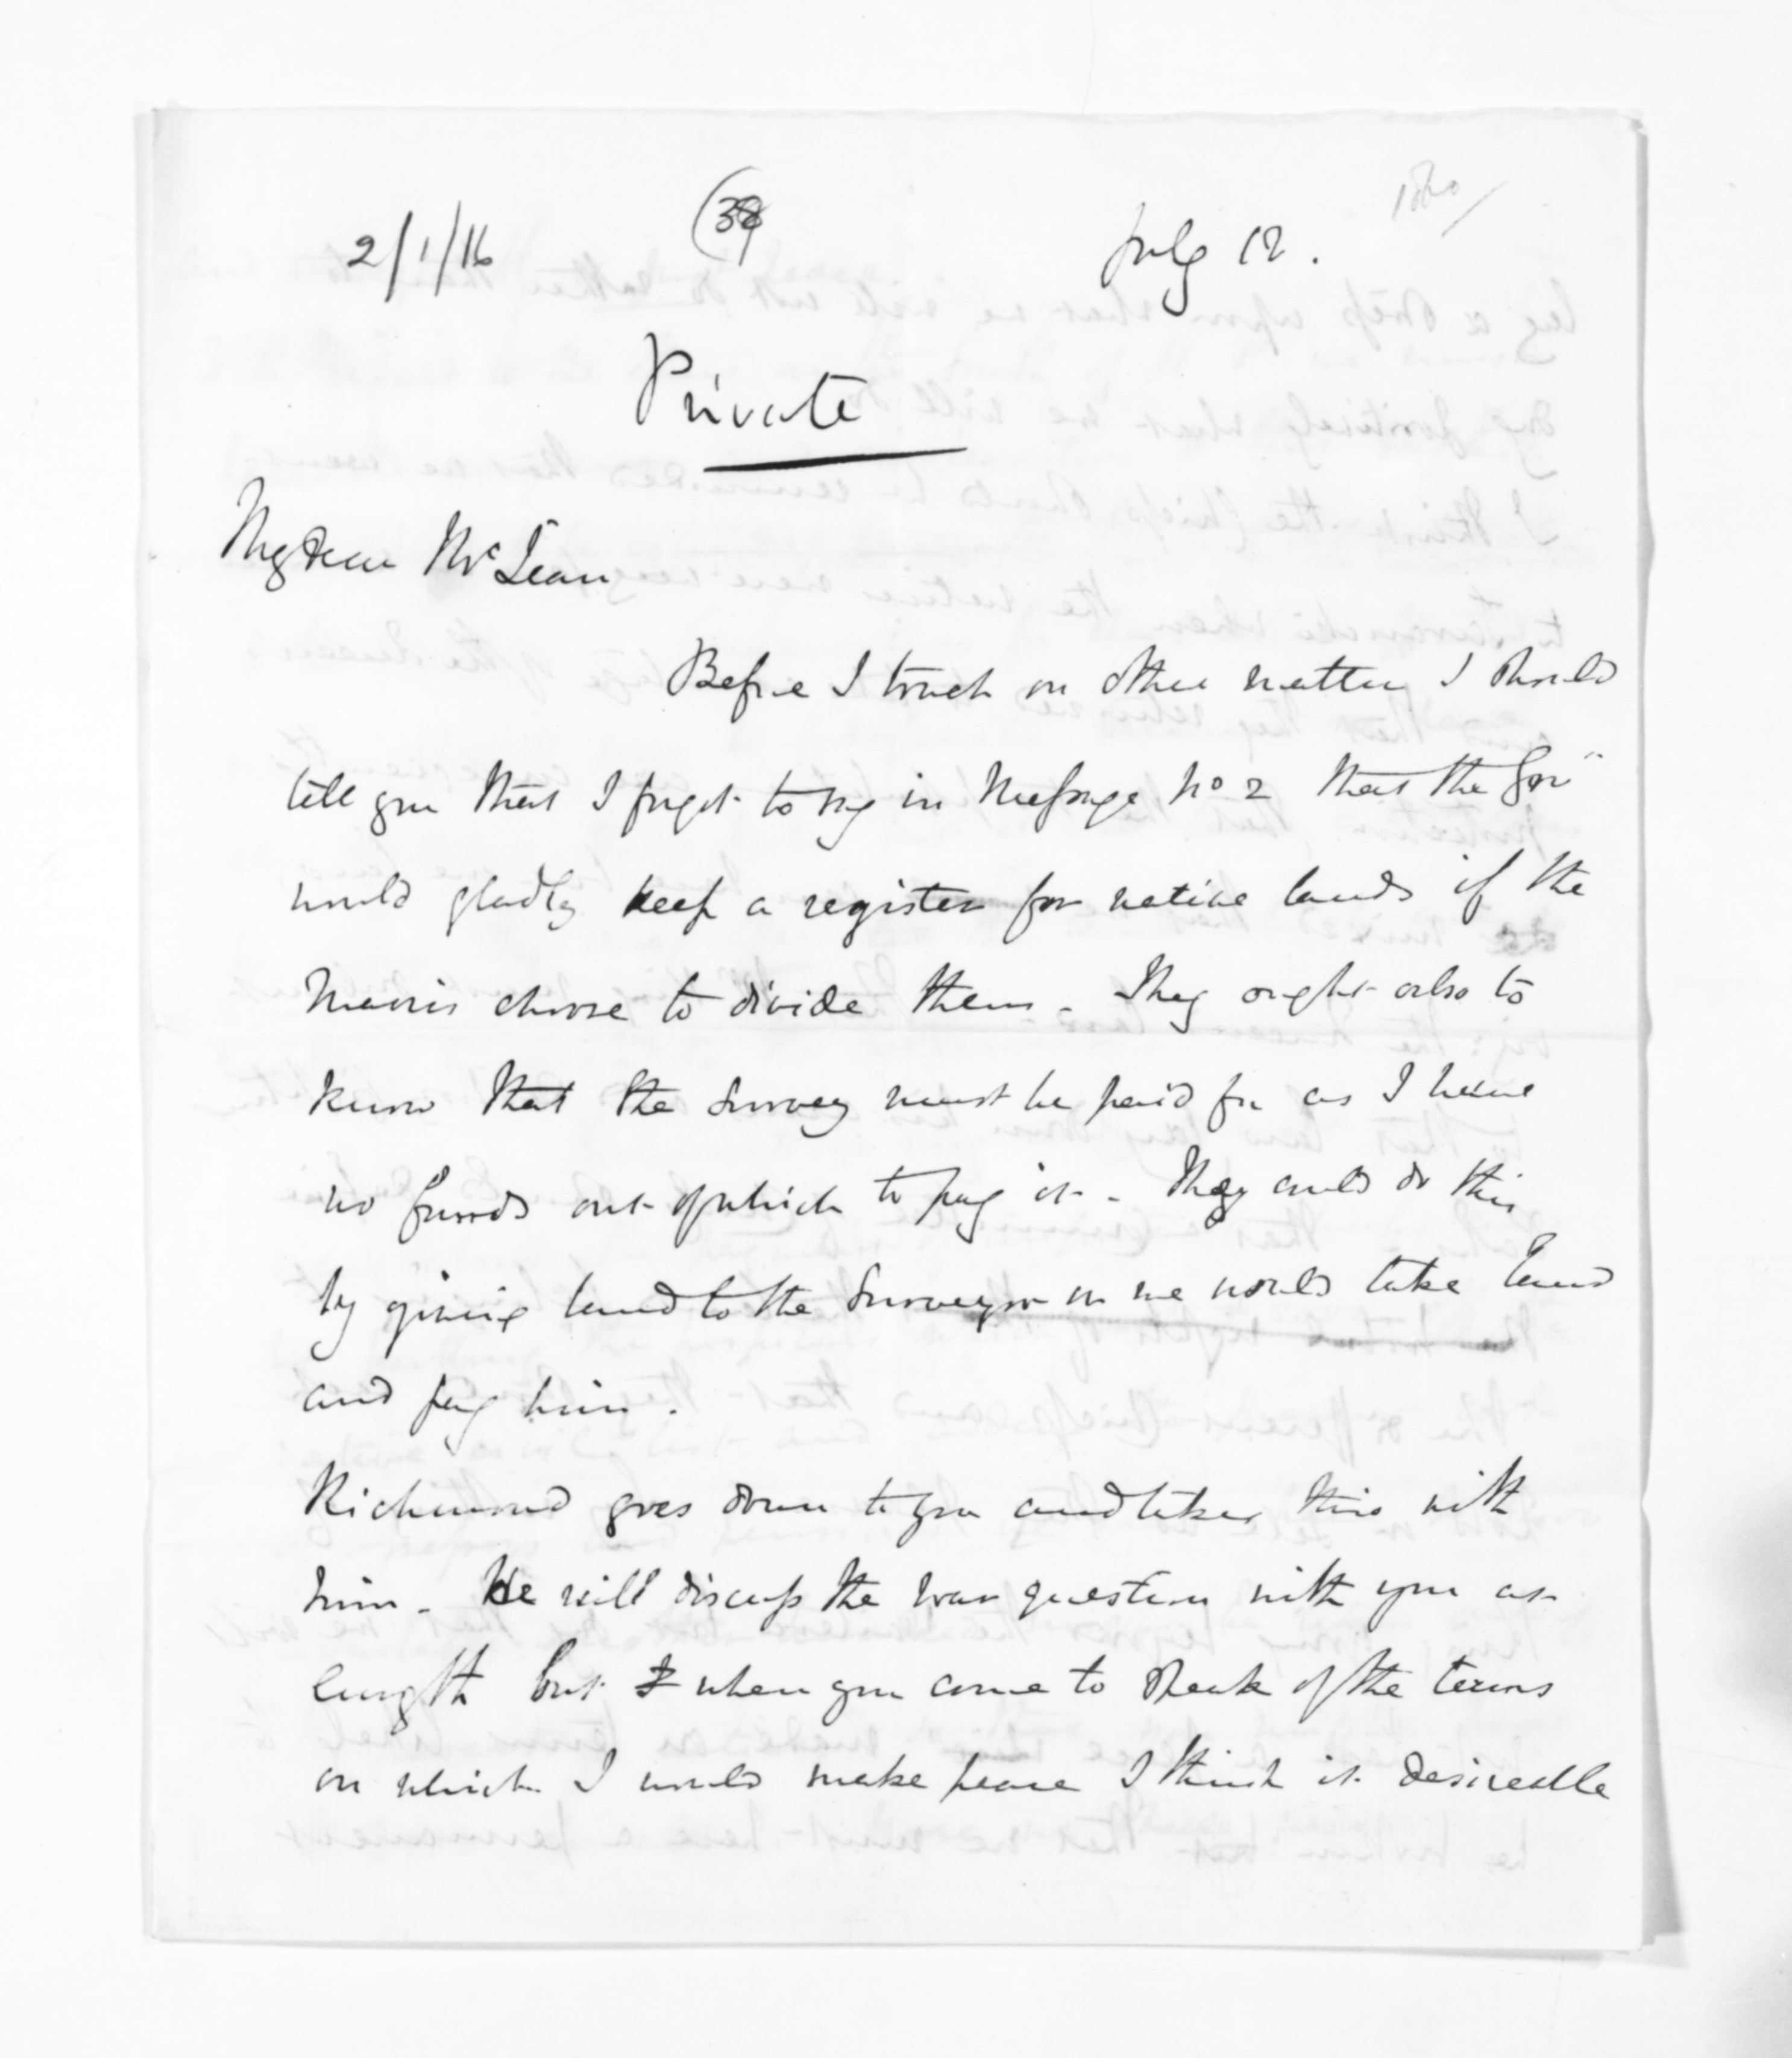 2/1/16 (39 July 12. 1860/
Private
My dear McLean
Before I touch on other matter I should
tell you that I forgot to say in Message No 2 that the Govt
would gladly keep a register for native lands if the
Maoris choose to divide them - They ought also to
know that the Survey must be paid for as I have
no funds out of which to pay it - They could do this
by giving land to the Surveyor or we would take land
and pay him.
Richmond goes down to you and takes this with
him - He will discuss the war question with you at
length but when you come to speak of the terms
on which I would make peace I think it desireable